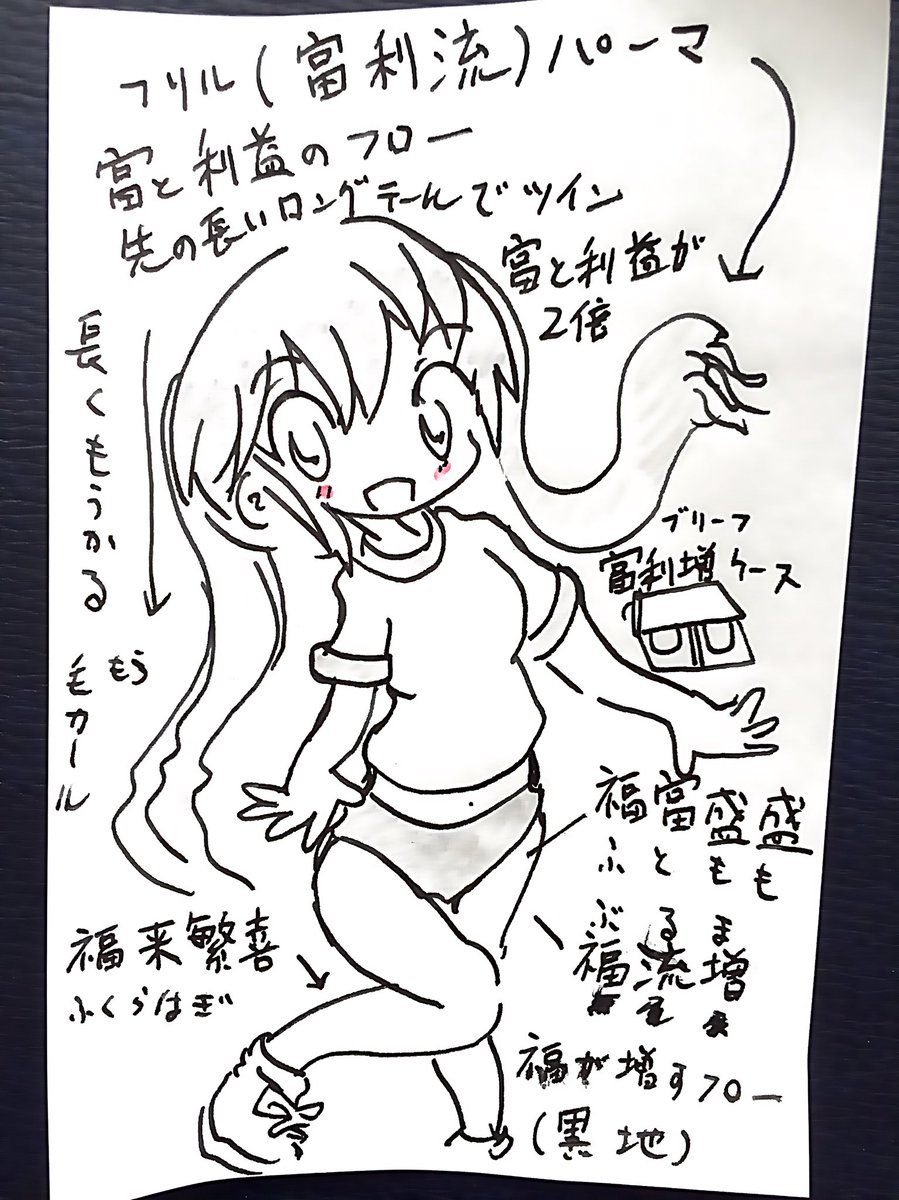 フリル(富利流)パーマ
富と利益のフロー
先の長いロングテールでツイン
富と利益が
2倍
長くもうかる
もう
毛カール
ブリーフ
富利増ケース
福富盛盛
ふともも
福来繁喜
ふくらはぎ
ぶるま
福流増
福が増すフロー
(黒地)